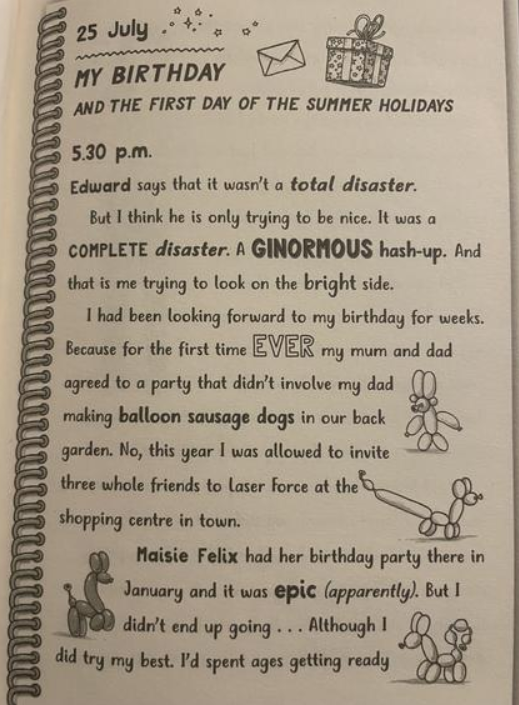 25 July
MY BIRTHDAY
AND THE FIRST DAY OF THE SUMMER HOLIDAYS
5.30 p.m.
Edward says that it wasn't a total disaster.
But I think he is only trying to be nice. It was a
COMPLETE disaster. A GINORMOUS hash-up. And
that is me trying to look on the bright side.
I had been looking forward to my birthday for weeks.
Because for the first time EVER my mum and dad
agreed to a party that didn't involve my dad
making balloon sausage dogs in our back
garden. No, this year I was allowed to invite
three whole friends to Laser Force at the
shopping centre in town.
Maisie Felix had her birthday party there in
January and it was epic (apparently). But I
didn't end up going . . . Although I
did try my best. I'd spent ages getting ready